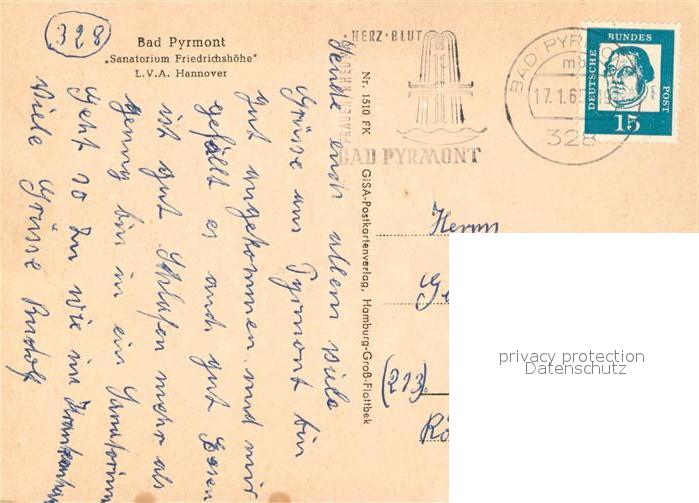 328
Bad Pyrmont
„Sanatorium Friedrichshöhe"
L.V.A. Hannover
Sende euch allem viele
Grüsse aus Pyrmont bin
gut angekommen und mir
gefällt es auch gut Essen
ist gut Schlafen mehr als
genug bin in ein Sanatorium
geht so zu wie im Krankenhaus
Viele Grüsse Rudolf
Nr. 1510 FK GiSA-Postkartenverlag, Hamburg-Groß-Flottbek
HERZ · BLUT
FRAUEN
BAD PYRMONT
BAD PYRMONT
17.1.6
328
DEUTSCHE
BUNDES
POST
15
Herrn
(213)
privacy protection
Datenschutz